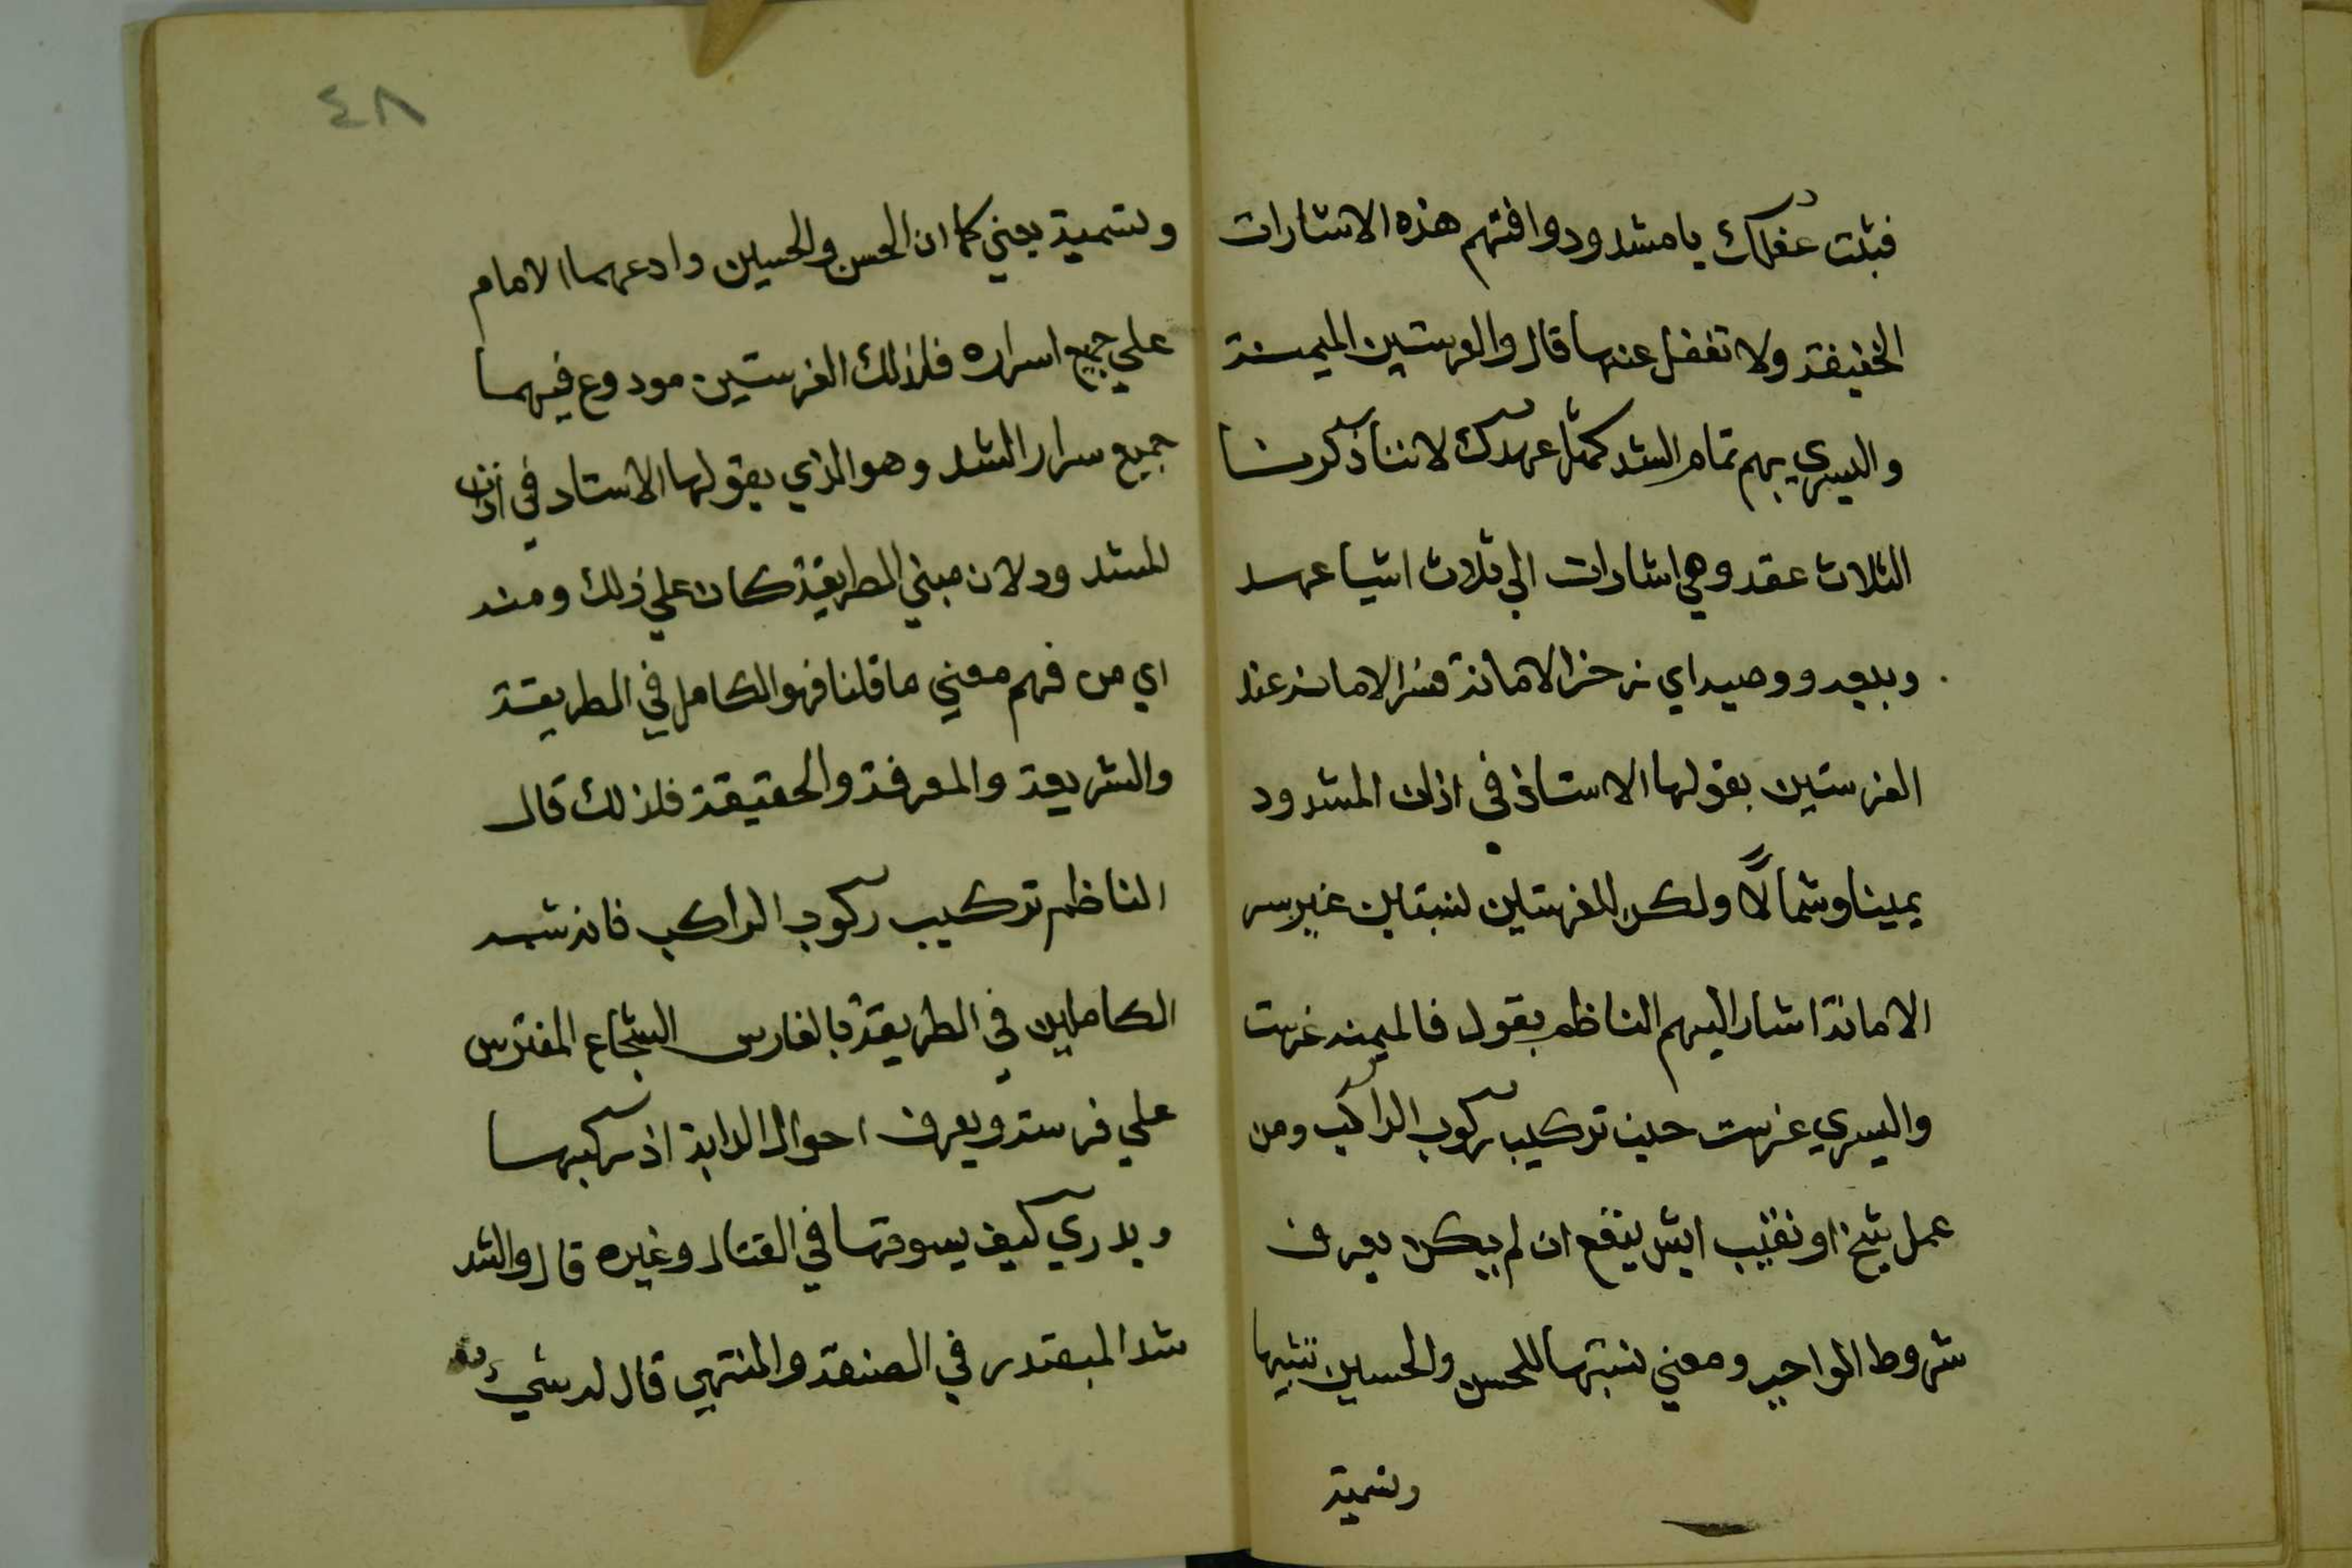 فبثت عقلك يا مشدود وافتهم هذه الاشارات
الخفيفة ولا تغفل عنها قال والغرستين الميمنة
واليسري بهم تمام الشد كمثل عهدك لاننا ذكرنا
الثلاث عقد وهي اشارات الي ثلاث اشيا عهد
وبيعه ووصيه اي
الغرستين يقولها الاستاذ في اذان المشدود
يمينا وشمالًا ولكن للغرستين نسبتين غير سر
الامانة اشار اليهم الناظم بقوله فالميمنه غرست
واليسري غرست حين تركيب ركوب الراكب ومن
عمل شيخ او نقيب ايش ينفع ان لم يكن يعرف
شروط الواجب ومعني نسبتها للحسن والحسين تشبيها
وتسمية
٤٨
وتسمية يعني كما ان الحسن والحسين وادعهما الامام
علي جميع اسراره فلذلك الغرستين مودوع فيهما
جميع سرار الشد وهو الذي يقولها الاستاد في اذان
المشدود لان مبني الطريقة كان علي ذلك ومنه
اي من فهم معني ما قلنا فهو الكامل في الطريقة
والشريعة والمعرفة والحقيقة فلذلك قال
الناظم تركيب ركوب الراكب فانه شبه
الكاملين في الطريقة بالفارس الشجاع المفترس
علي فرسه ويعرف احوال الدابة اذ ركبها
ويدري كيف يسوقها في القتال وغيره قال والشد
شد المبتدر في الصنعة والمنتهي قال له شيء